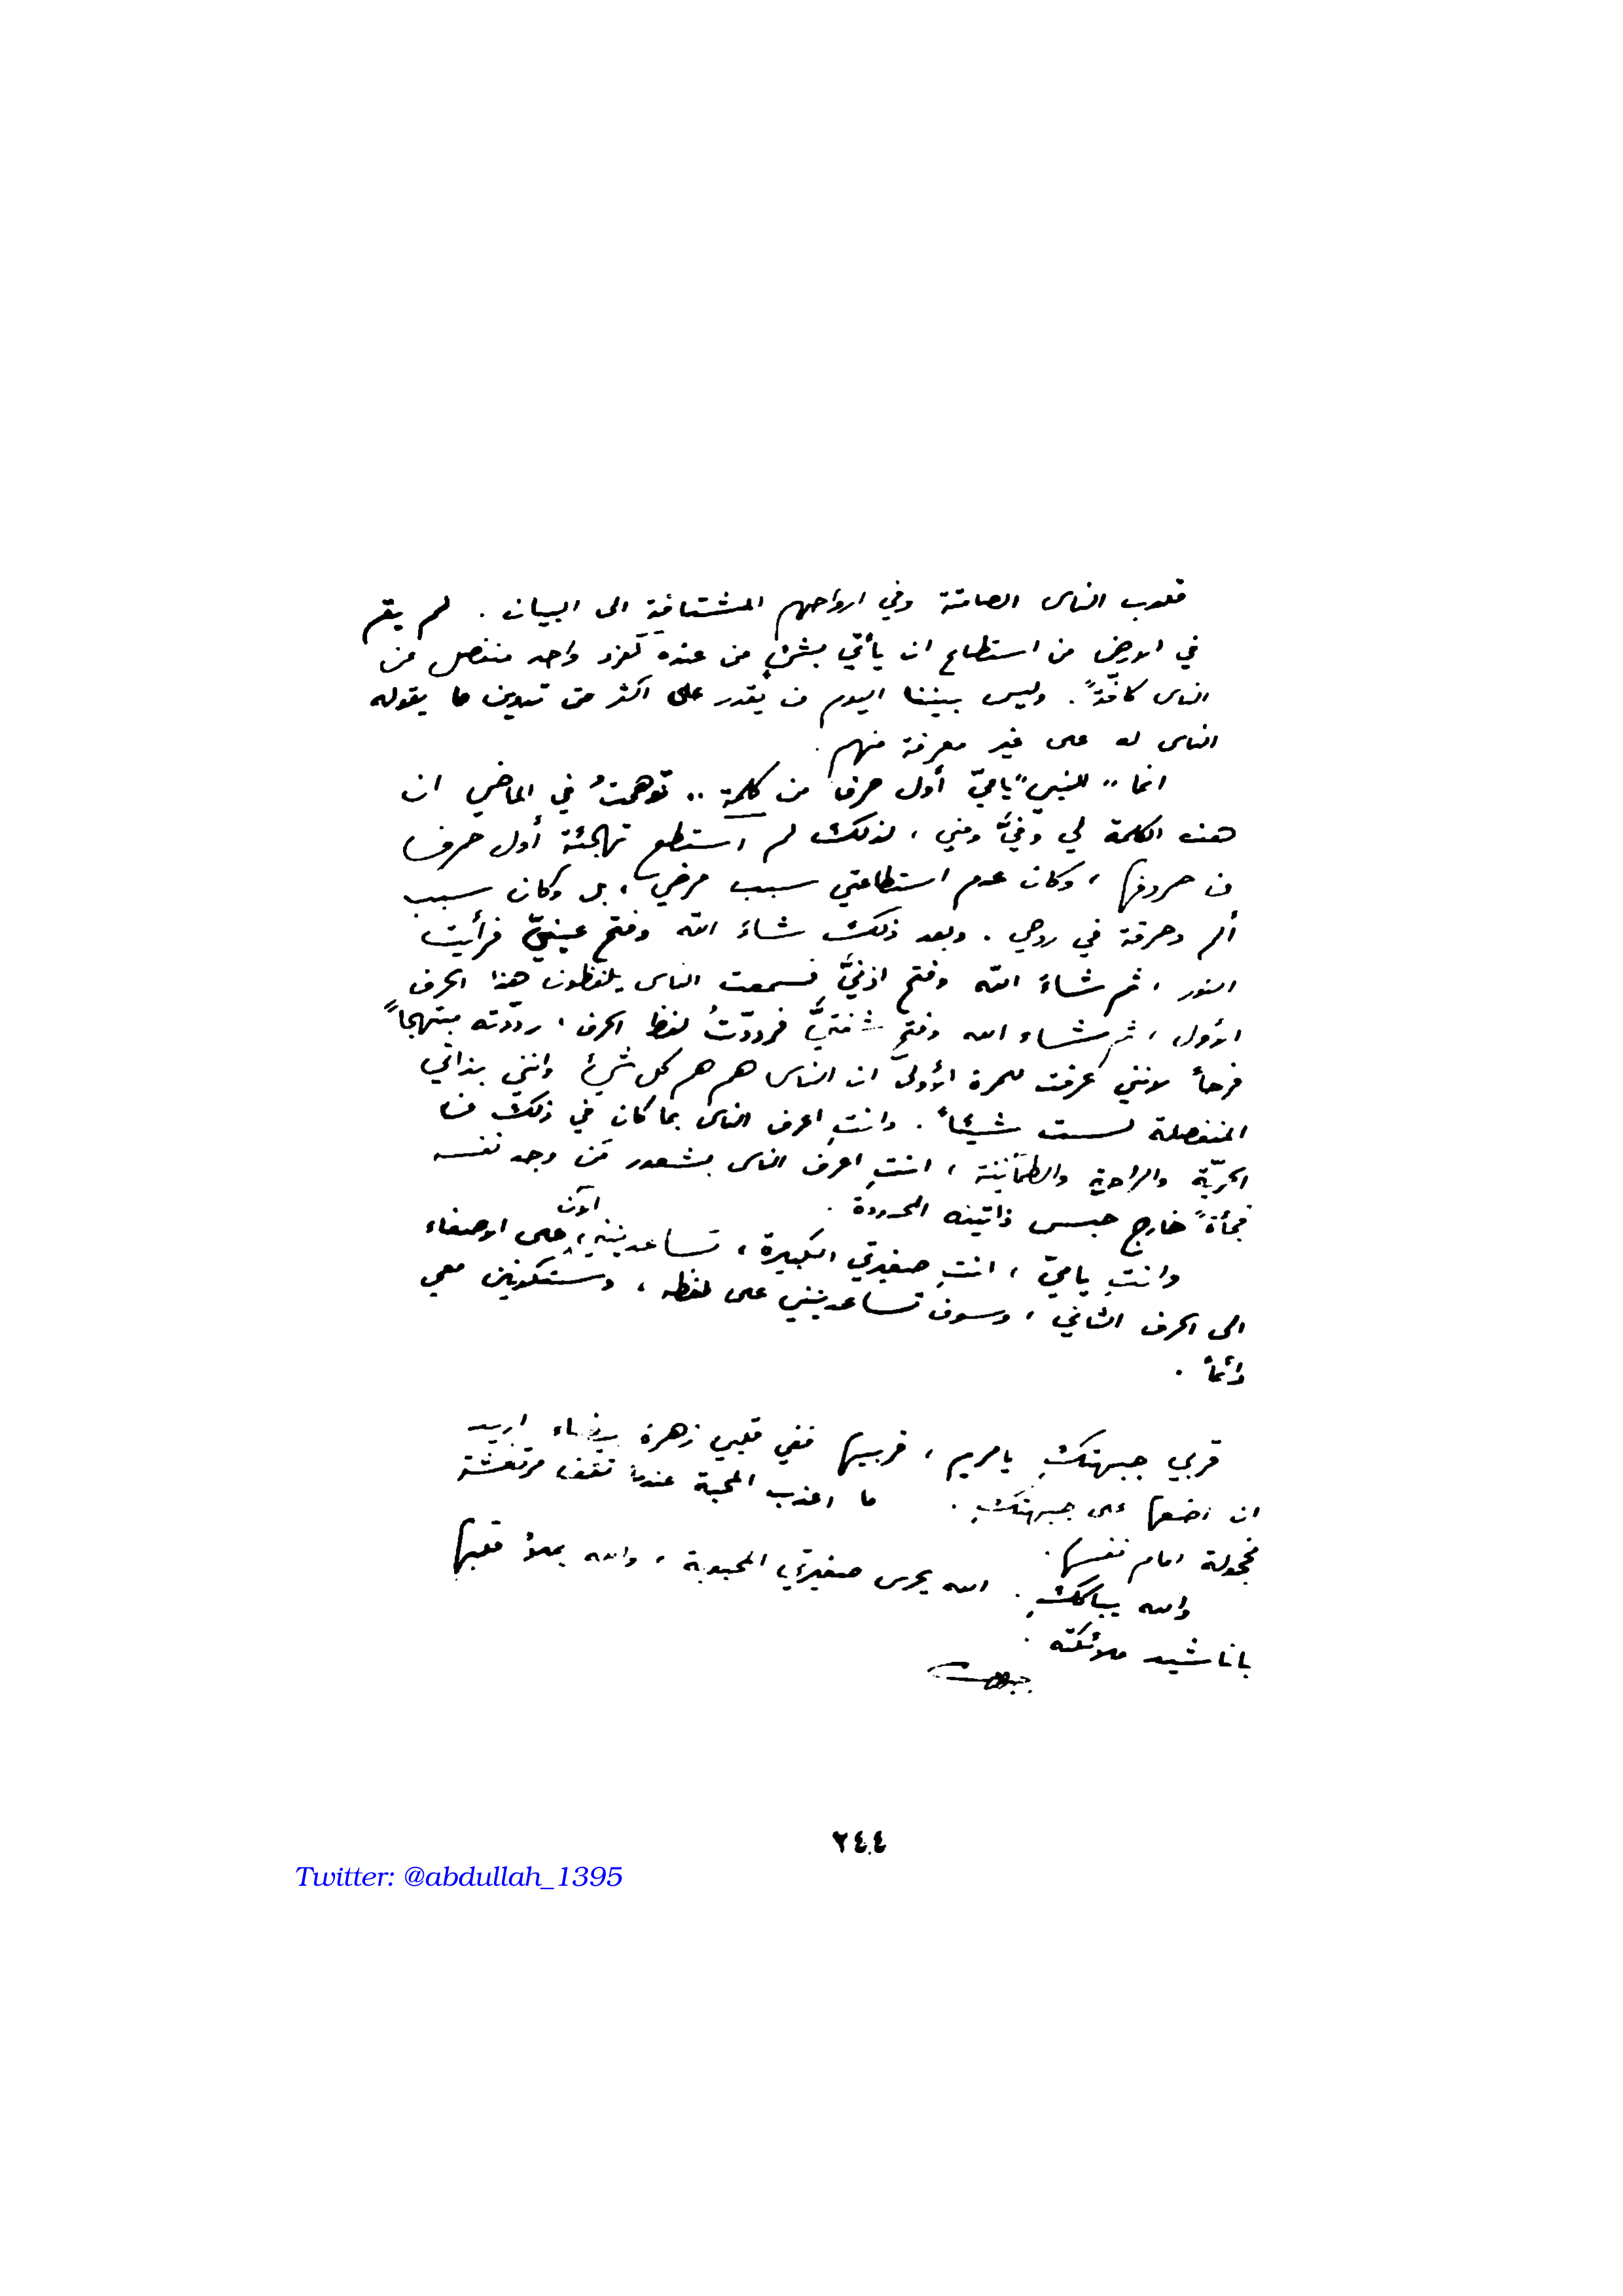 قلوب الناس الصامتة وفي ارواحهم المشتاقة الى البيان . لم يقم
في الارض من استطاع ان يأتي بشيءٍ من عنده كفرد واحد منفصل عن
الناس كافّةً . وليس بيننا اليوم من يقدر على اكثر من تدوين ما يقوله
الناس له على غير معرفة منهم .
انما "النبي" يا ميّ أول حرف من كلمة .. توهمتُ في الماضي ان
هذه الكلمة لي وفيَّ ومني ، لذلك لم استطع تهجئة أول حرف
من حروفها ، وكان عدم استطاعتي سبب مرضي ، بل وكان سبب
ألم وحرقة في روحي . وبعد ذلك شاءَ الله وفتح عينيّ فرأيت
النور ، ثم شاءَ الله وفتح اذنيَّ فسمعت الناس يلفظون هذا الحرف
الأول ، ثم شاء الله وفتح شفتيَّ فرددّتُ لفظ الحرف ، رددّته مبتهجاً
فرحاً لانني عرفت للمرة الأولى ان الناس هم هم كل شيءٍ وانني بذاتي
المنفصلة لست شيئاً . وانتِ اعرف الناس بما كان في ذلك من
الحرّية والراحة والطمأنينة ، انتِ اعرف الناس بشعور مَن وجد نفسه
فجأةً خارج حبس ذاتيته المحدودة .
وانتِ يا ميّ ، انتِ صغيرتي الكبيرة ، تساعدينني الآن على الاصغاء
الى الحرف الثاني ، وسوف تساعدينني على لفظه ، وستكونين معي
دائماً .
قربي جبهتكِ يا مريم ، قربيها ففي قلبي زهرة بيضاء اريد
ان اضعها على جبهتكِ . ما اعذب المحبة عندما تقف مرتعشة
مخجولة امام نفسها .
والله يباركك . الله يحرس صغيرتي المحبوبة ، والله يملأ قلبها
باناشيد ملائكته .
جبران
٢٤٤
Twitter: @abdullah_1395